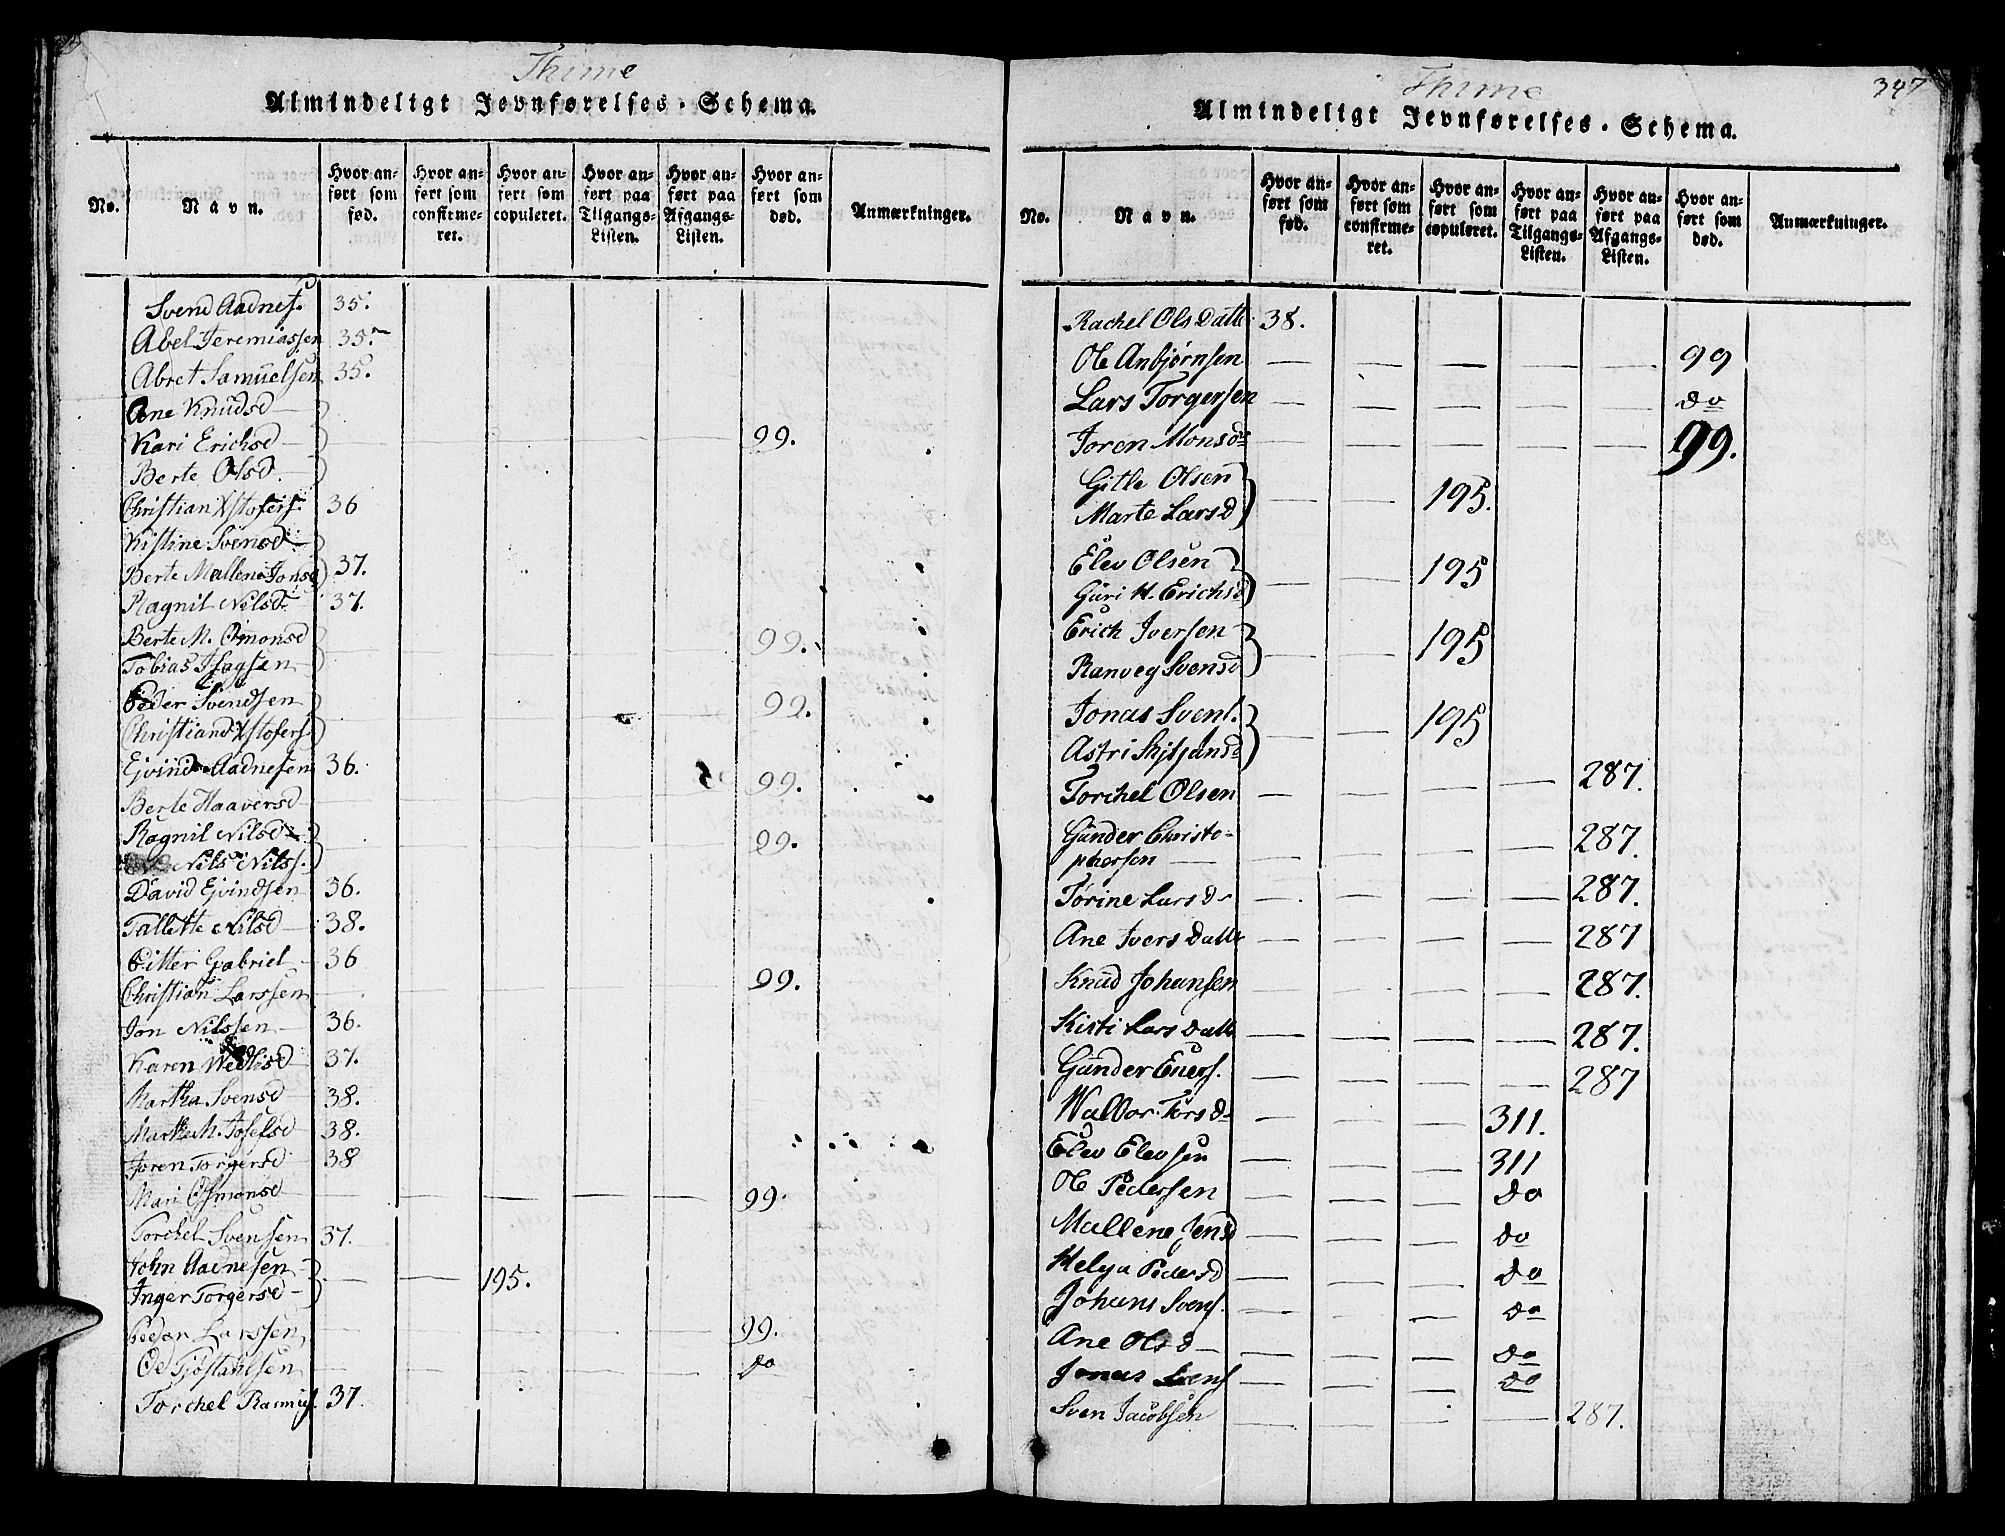 Thime
Almindeligt Jevnførelses-Schema.
No.
Navn.
Hvor anført som fød.
Hvor anført som confirmeret.
Hvor anført som copuleret.
Hvor anført paa Tilgangs-Listen.
Hvor anført paa Afgangs-Listen.
Hvor anført som død.
Anmærkninger.
Svend Aadnes. 35.
Abel Jeremiassen 35.
Abret Samuelsen 35.
Ane Knudsd
Kari Erichsd 99.
Berte Olsd.
Christian Xstofers. 36
Kistine Svensd
Berte Mallene Jonsd 37.
Ragnil Nilsd 37.
Berte M. Omonsd 99.
Tobias Isagsen
Peder Svendsen 99.
Christiand Xstofers
Ejvind Aadnesen 36.
Berte Haaversd 99.
Ragnil Nilsd
Nils Nilss. 99.
David Ejvindsen 36.
Tallette Nilsd 38.
Pitter Gabriel 36
Christian Larssen 99.
Jon Nilssen 36.
Karen 37.
Martha Svensd 38.
Marthe M. Josefsd 38.
Joren Torgersd 38
Mari Osmonsd 99.
Torchel Svensen 37.
John Aadnesen
Inger Torgersd 195.
Peder Larssen 99.
Oe Tjøstahlsen do
Torchel Rasmus. 37.
Thime
347
Almindeligt Jevnførelses-Schema.
No.
Navn.
Hvor anført som fød.
Hvor anført som confirmeret.
Hvor anført som copuleret.
Hvor anført paa Tilgangs-Listen.
Hvor anført paa Afgangs-Listen.
Hvor anført som død.
Anmærkninger.
Rachel Ols Datte 38.
Ole Anbjørnsen 99
Lars Torgersen do
Joren Monsd 99.
Gitle Olsen
Marte Larsd 195.
Elev Olsen
Guri H. Erichsd 195
Erich Iversen
Ranveg Svensd 195
Jonas Svens.
Astri 195
Torchel Olsen 287.
Gunder Christo-
phersen 287.
Tørine Larsd 287.
Ane Ivers Datte 287
Knud Johansen 287.
Kisti Lars Datte 287.
Gunder Eners. 287
Walbor Torsd 311.
Elev Elevsen 311
Ole Pedersen do
Mallene Jensd do
Helga Pedersd do
Johans Svens. do
Ane Olsd do
Jonas Svens do
Sven Jacobsen 287.